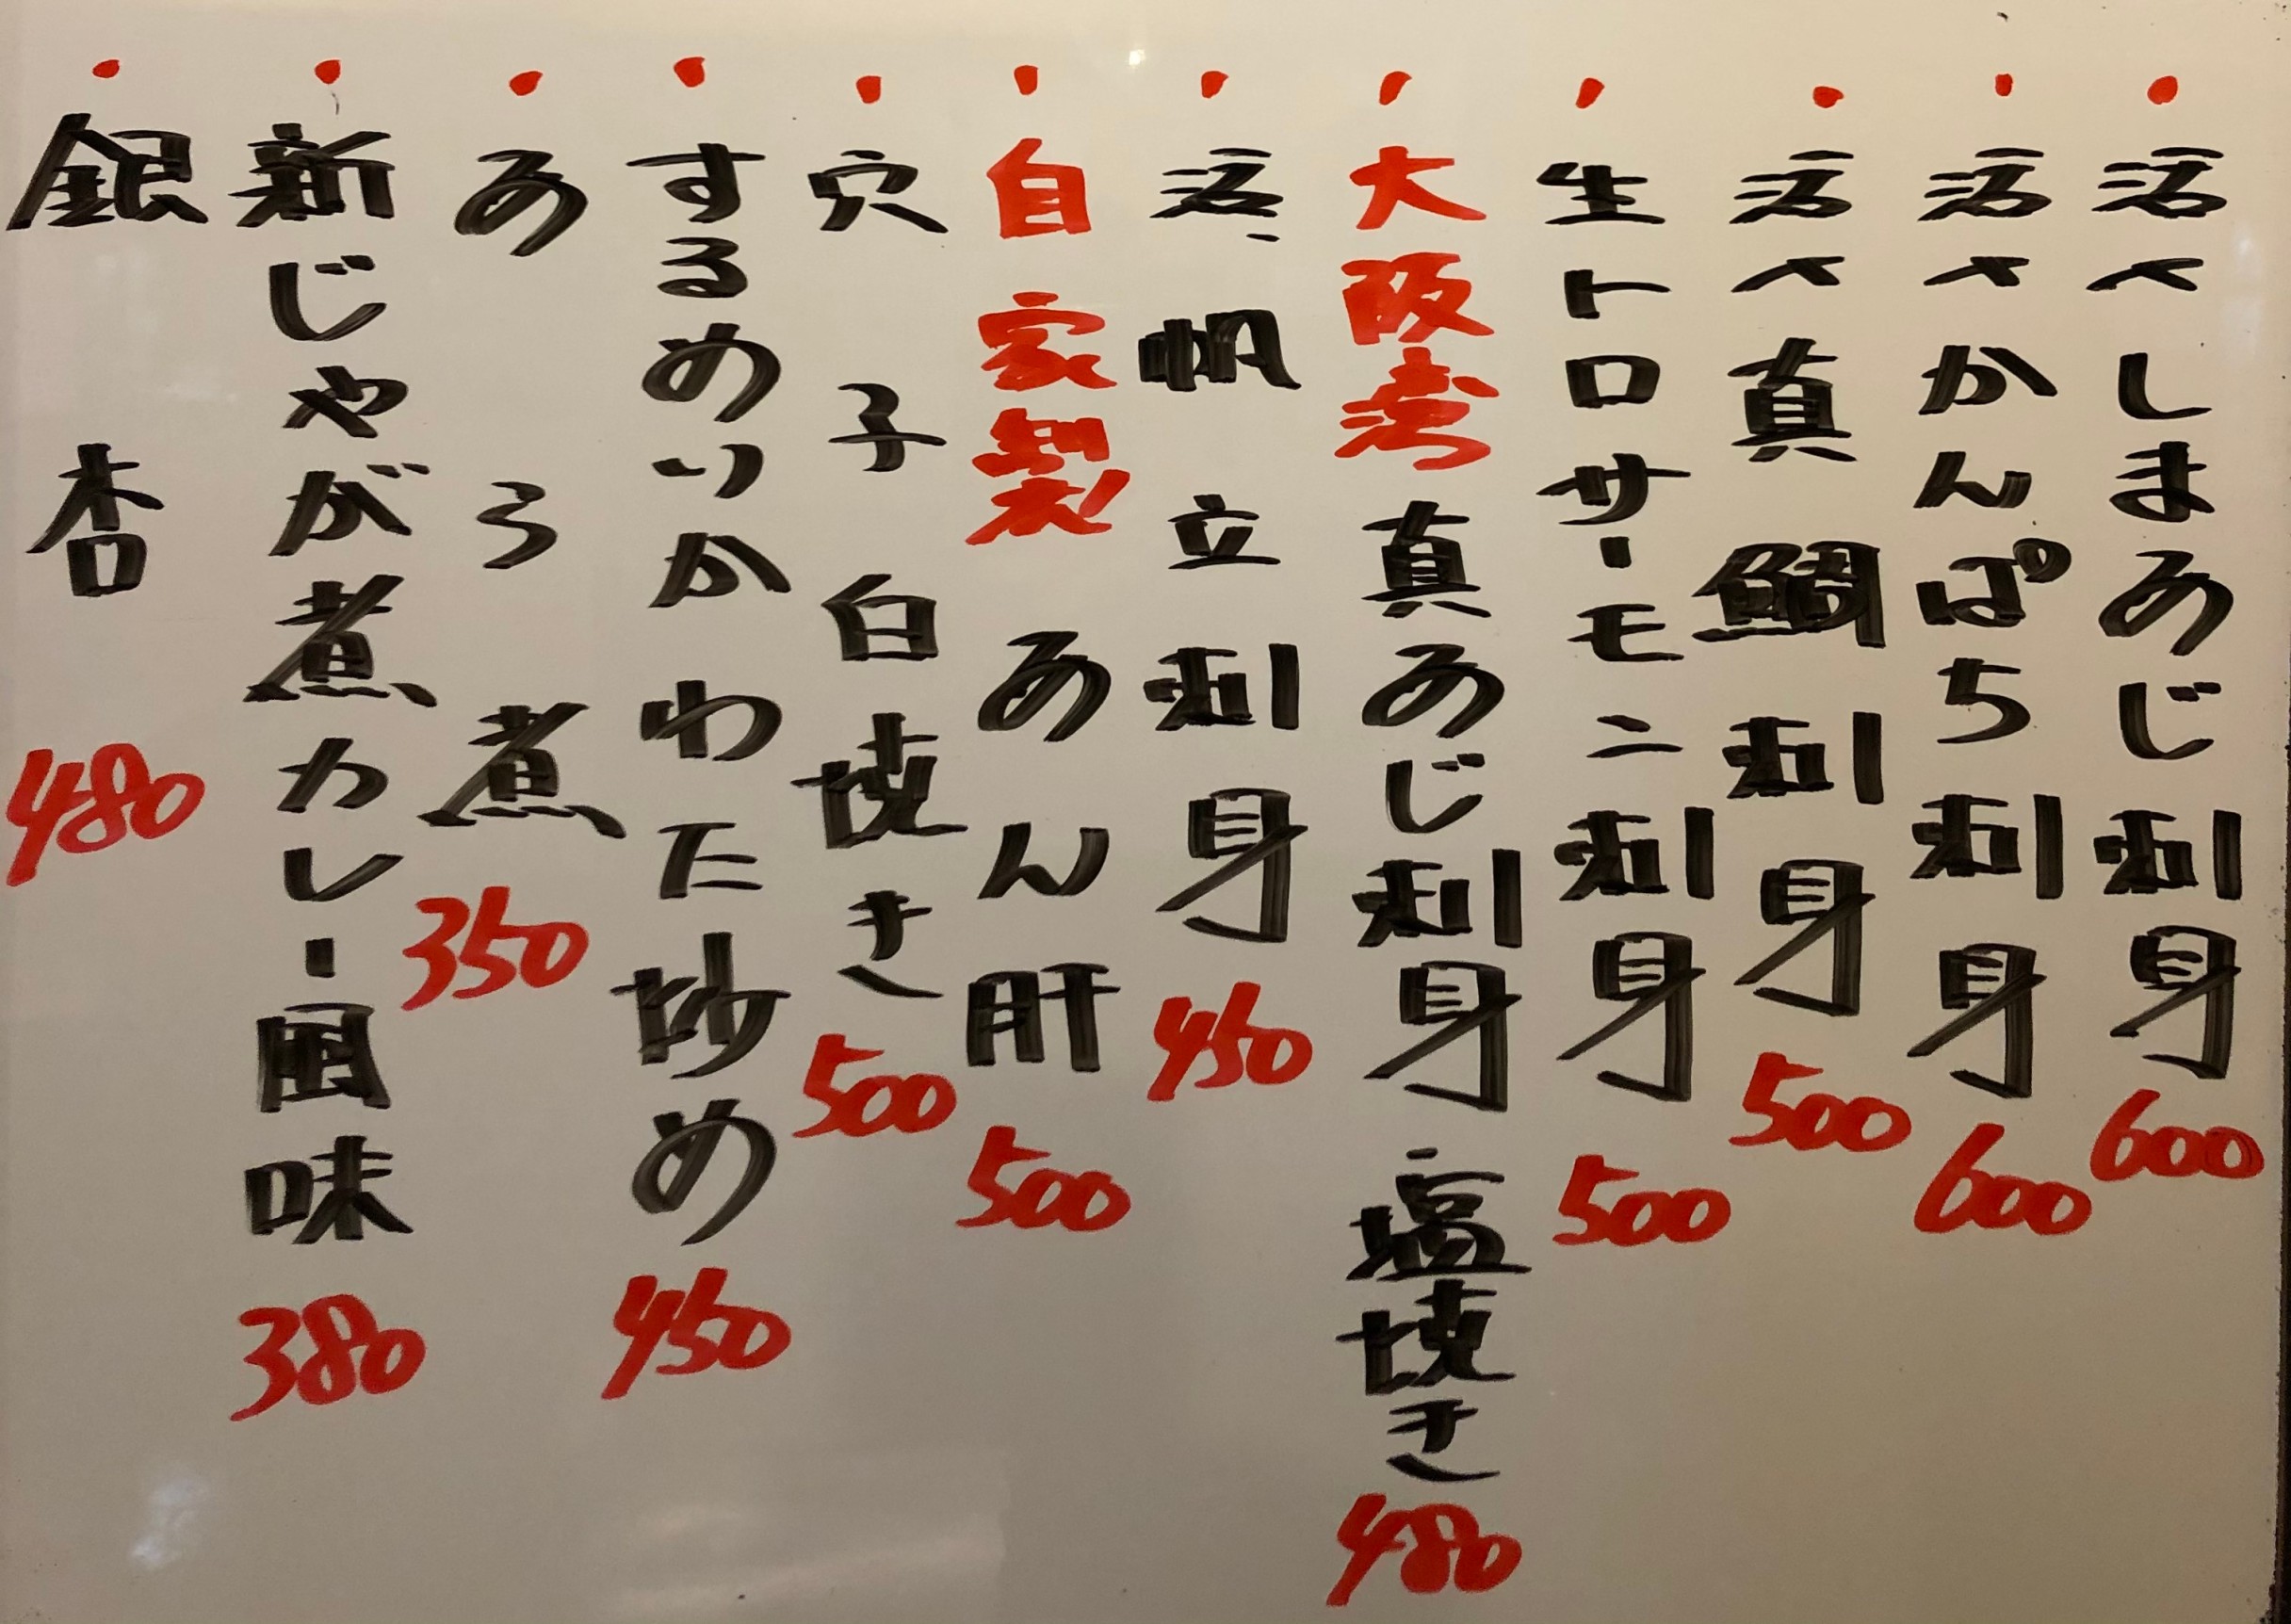 ・活〆しまあじ刺身 600
・活〆かんぱち刺身 600
・活〆真鯛刺身 500
・生トロサーモン刺身 500
・大阪湾真あじ刺身・塩焼き 480
・活帆立刺身 450
・自家製あん肝 500
・穴子白焼き 500
・するめいかわた炒め 450
・あら煮 350
・新じゃが煮カレー風味 380
・銀杏 480